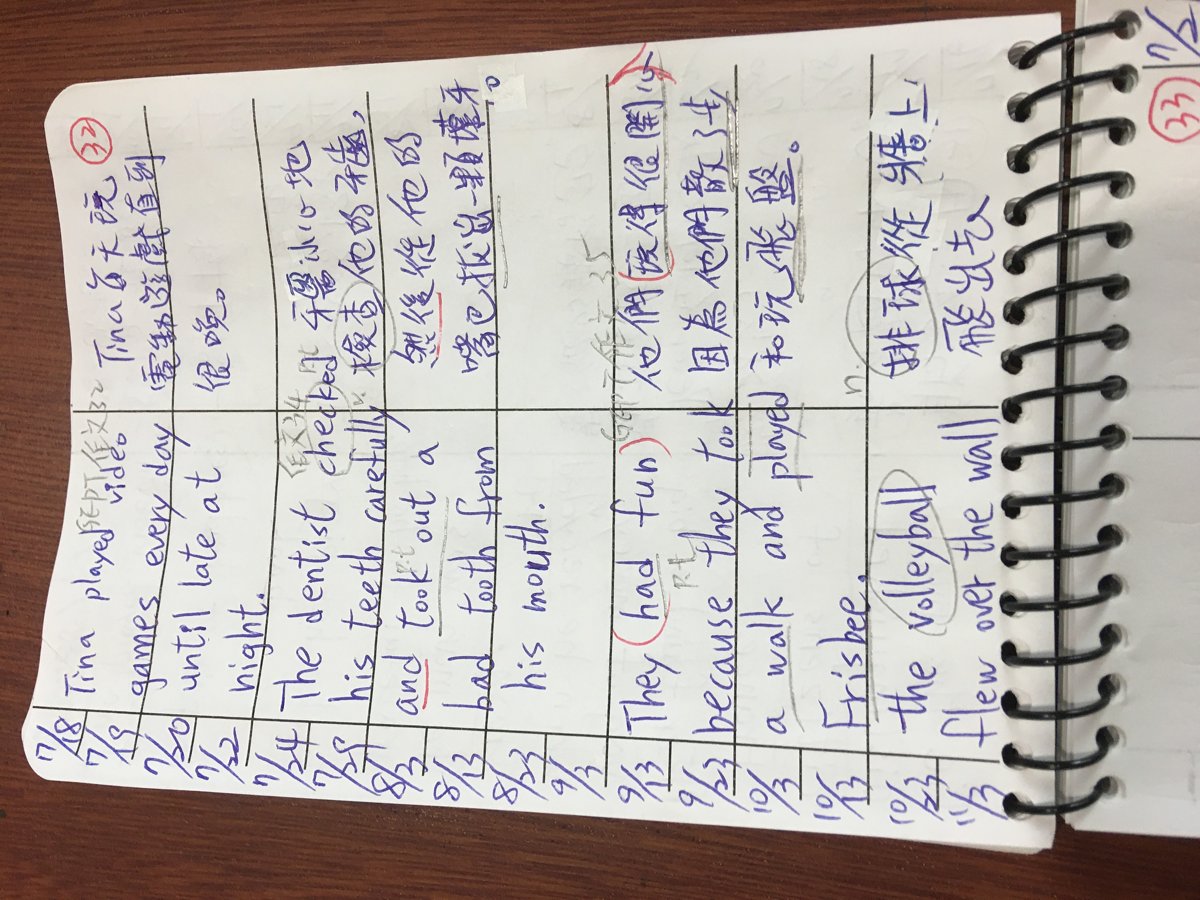 32
7/18
7/19
7/20
7/22
7/24
7/25
8/3
8/13
8/23
9/3
9/13
9/23
10/3
10/13
10/23
11/3
GEPT作文32
Tina played video
games every day
until late at
night.
作文34
The dentist checked
his teeth carefully
and took out a
p.t
bad tooth from
his mouth.
GEPT作文35
They had fun
p.t
because they took
a walk and played
Frisbee.
the volleyball
flew over the wall
Tina每天玩
電動遊戲直到
很晚。
p.t
牙醫小心地
v.
檢查他的牙齒,
然後從他的
嘴巴拔出一顆壞牙。
他們玩得很開心
因為他們散了步
和玩飛盤。
n.
排球從牆上
飛出去
33
7/2